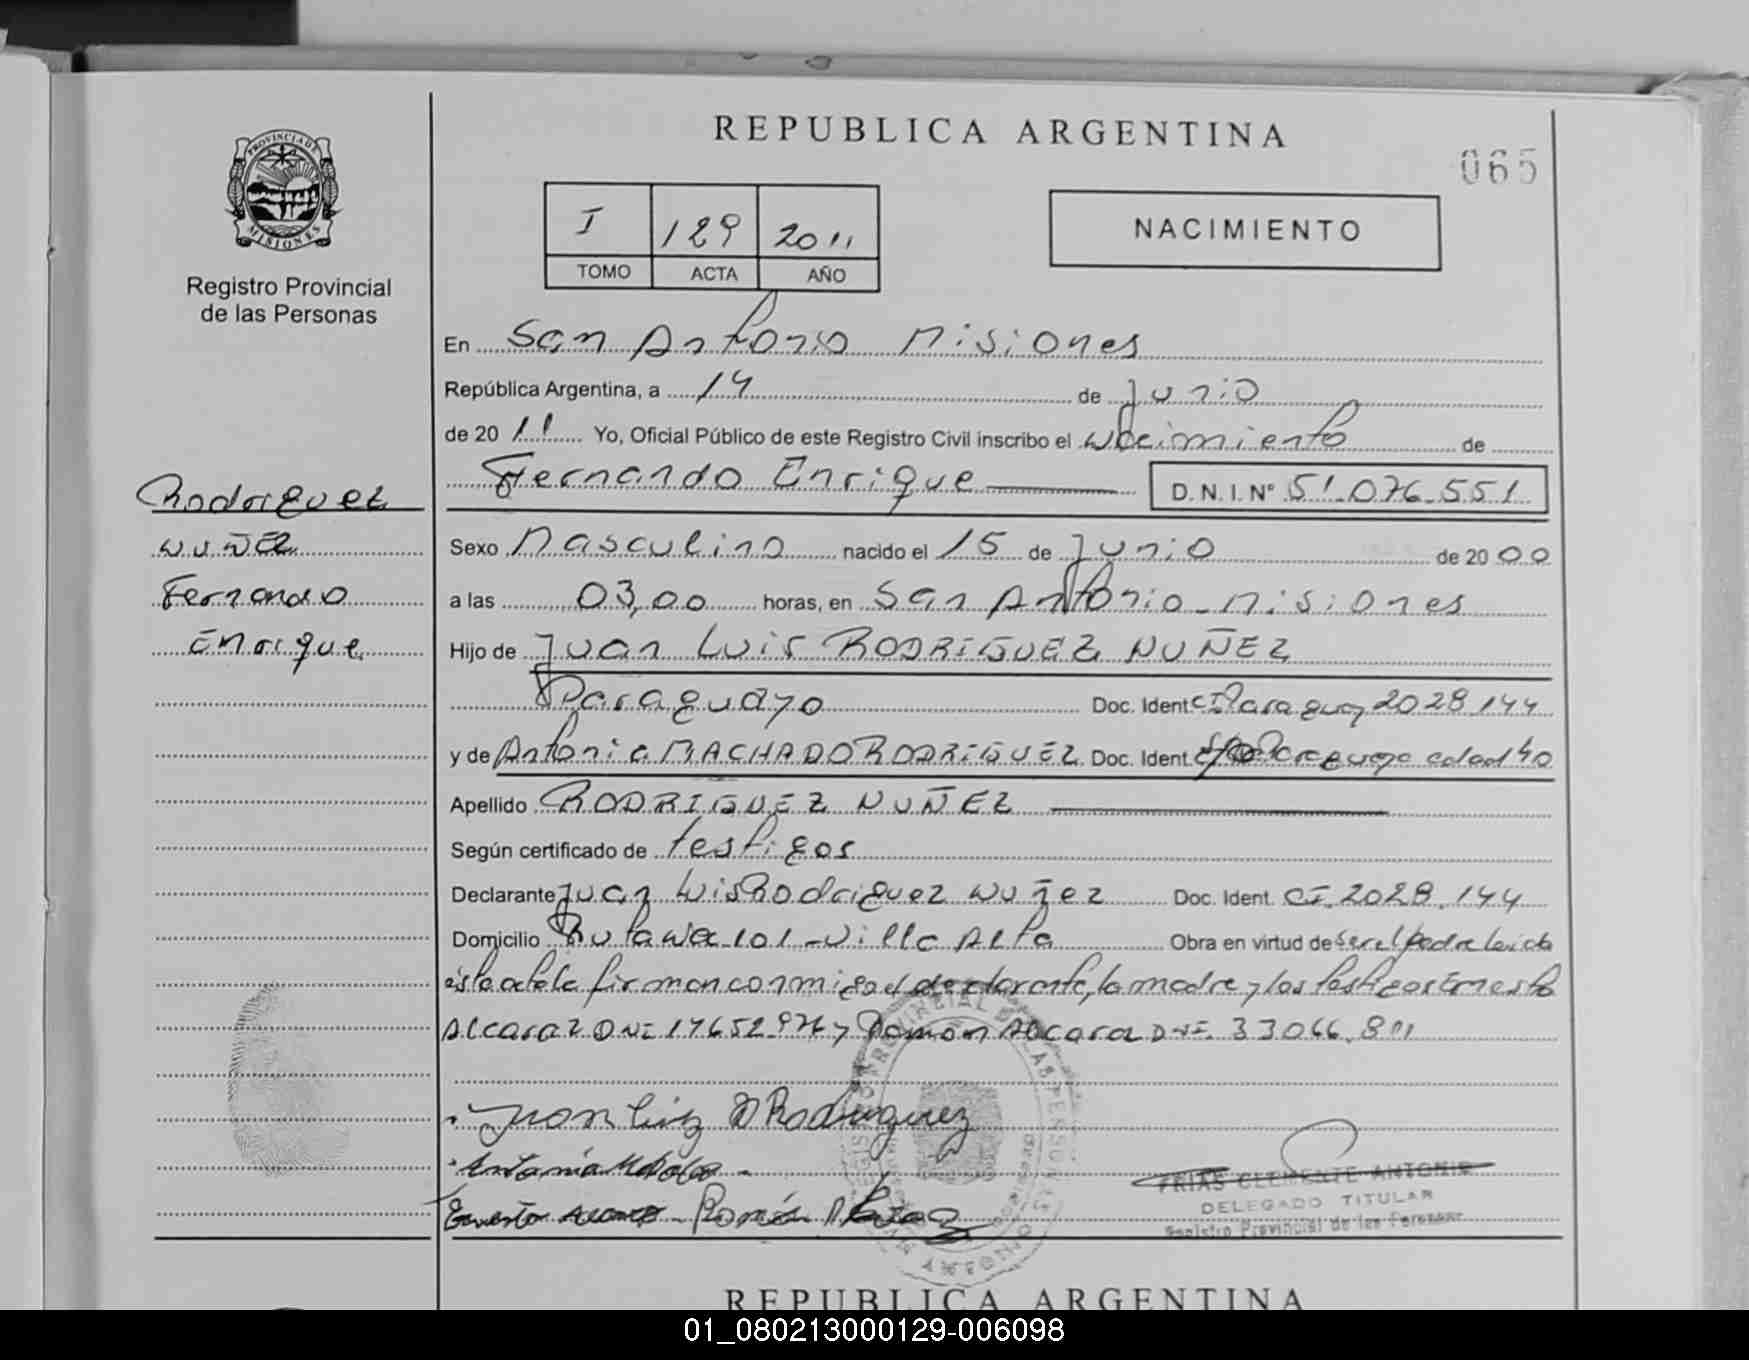 REPUBLICA ARGENTINA
065
PROVINCIA DE MISIONES
Registro Provincial
de las Personas
I 129 2011
TOMO ACTA AÑO
NACIMIENTO
En San Antonio Misiones
República Argentina, a 14 de Junio
de 2011 Yo, Oficial Público de este Registro Civil inscribo el Nacimiento de
Fernando Enrique D.N.I.Nº 51.076.551
Rodriguez
Nuñez
Fernando
Enrique
Sexo Masculino nacido el 15 de Junio de 2000
a las 03,00 horas, en San Antonio - Misiones
Hijo de Juan Luis RODRIGUEZ NUÑEZ
Paraguayo Doc. Ident CI Paraguay 2028.144
y de Antonia MACHADO RODRIGUEZ Doc. Ident. Paraguaya edad 40
Apellido RODRIGUEZ NUÑEZ
Según certificado de testigos
Declarante Juan Luis Rodriguez Nuñez Doc. Ident. CI. 2028.144
Domicilio Ruta Nac 101 - Villa Alta Obra en virtud de ser el padre Leida
ésta acta la firman conmigo el declarante, la madre y los testigos Ernesto
Alcaraz DNI 17652.976 y Ramon Alcaraz DNI. 33066.811
Juan Luiz N Rodriguez
Antonia
Ernesto - Ramón
FRIAS CLEMENTE ANTONIO
DELEGADO TITULAR
Registro Provincial de las Personas
REPUBLICA ARGENTINA
01_080213000129-006098